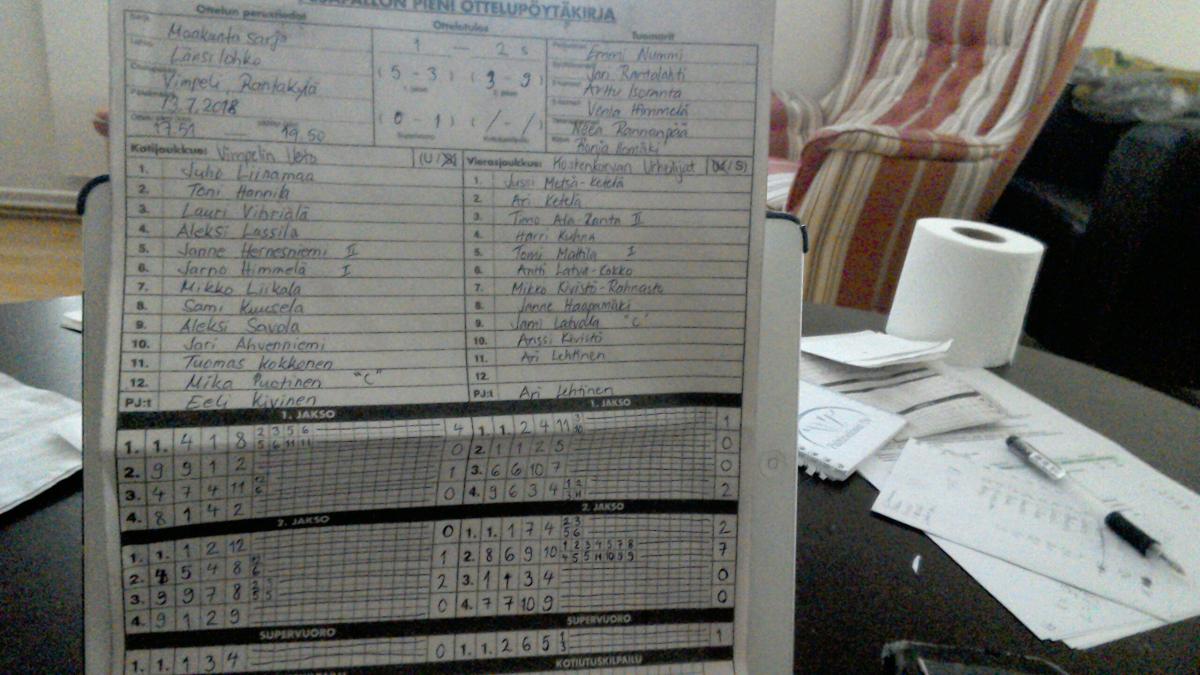 PESÄPALLON PIENI OTTELUPÖYTÄKIRJA
Ottelun perustiedot
Ottelutulos
Tuomarit
Maakunta sarja
Länsilohko
Vimpeli, Rantakylä
13.7.2018
17.51 19.50
1 — 2 s
(5 - 3) (3 - 9)
(0 - 1) (/ - /)
Emmi Nummi
Jari Rantalahti
Arttu Isoranta
Venla Himmelä
Neea Rannanpää
Ronja Ilomäki
Kotijoukkue: Vimpelin Veto (U/S)
1. Juho Liinamaa
2. Toni Hannila
3. Lauri Vihriälä
4. Aleksi Lassila
5. Janne Hernesniemi II
6. Jarno Himmelä I
7. Mikko Liikala
8. Sami Kuusela
9. Aleksi Savola
10. Jari Ahvenniemi
11. Tuomas Kokkonen
12. Mika Puotinen "C"
PJ:t Eeli Kivinen
Vierasjoukkue: Koskenkorvan Urheilijat (U/S)
1. Jussi Metsä-Ketelä
2. Ari Ketelä
3. Timo Ala-Ranta II
4. Harri Kuhna
5. Tomi Mattila I
6. Antti Latva-Kokko
7. Mikko Kivistö-Rahnasto
8. Janne Haapamäki
9. Jami Latvala "C"
10. Anssi Kivistö
11. Ari Lehtinen
12.
PJ:t Ari Lehtinen
1. JAKSO
1. 1. 4 1 8 2 3 5 6 4
5 6 11 11
2. 9 9 1 2 0
3. 4 7 4 11 1
4. 8 1 4 2 0
1. JAKSO
1. 1. 2 4 11 3 1
10
2. 1 1 2 5 0
3. 6 6 10 7 0
4. 9 6 3 4 1 2 2
3 11
2. JAKSO
1. 1. 1 2 12 0
2. 5 4 8 1
3. 9 9 7 8 2
4. 9 1 2 9 0
2. JAKSO
1. 1. 1 7 4 2 3 2
5 6
2. 8 6 9 10 1 2 3 4 5 7 8 7
4 5 5 11 10 9 9
3. 1 1 3 4 0
4. 7 7 10 9 0
SUPERVUORO
1. 1. 1 3 4 0
SUPERVUORO
1. 1. 2 6 5 1
KOTIUTUSKILPAILU